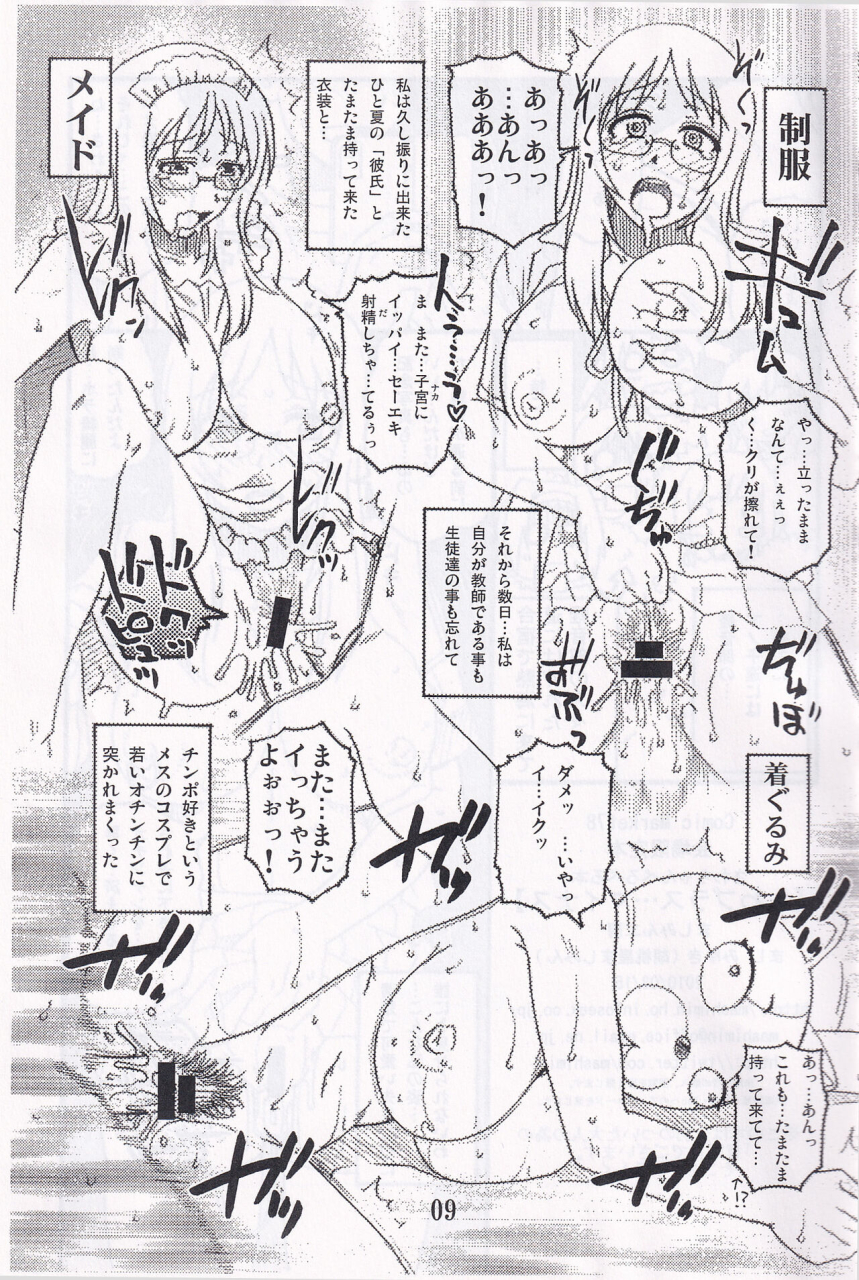 制服
あっあっ
…あんっ
あああっ！
ぞくっ
ぞくっ
ギュム
やっ…立ったまま
なんて…ぇぇっ
く…クリが擦れて！
ぐじゅ
メイド
私は久し振りに出来た
ひと夏の「彼氏」と
たまたま持って来た
衣装と…
ドクン
ま　また…子宮に
ナカ
イッパイ…セーエキ
射精しちゃ…てるぅっ
だ
ドクッ
ドピュッ
それから数日…私は
自分が教師である事も
生徒達の事も忘れて
チンポ好きという
メスのコスプレで
若いオチンチンに
突かれまくった
着ぐるみ
ダメッ
…いやっ
イ…イクッ
また…また
イっちゃう
よぉぉっ！
あっ…あんっ
これも…たまたま
持って来てて…
↑!?
09